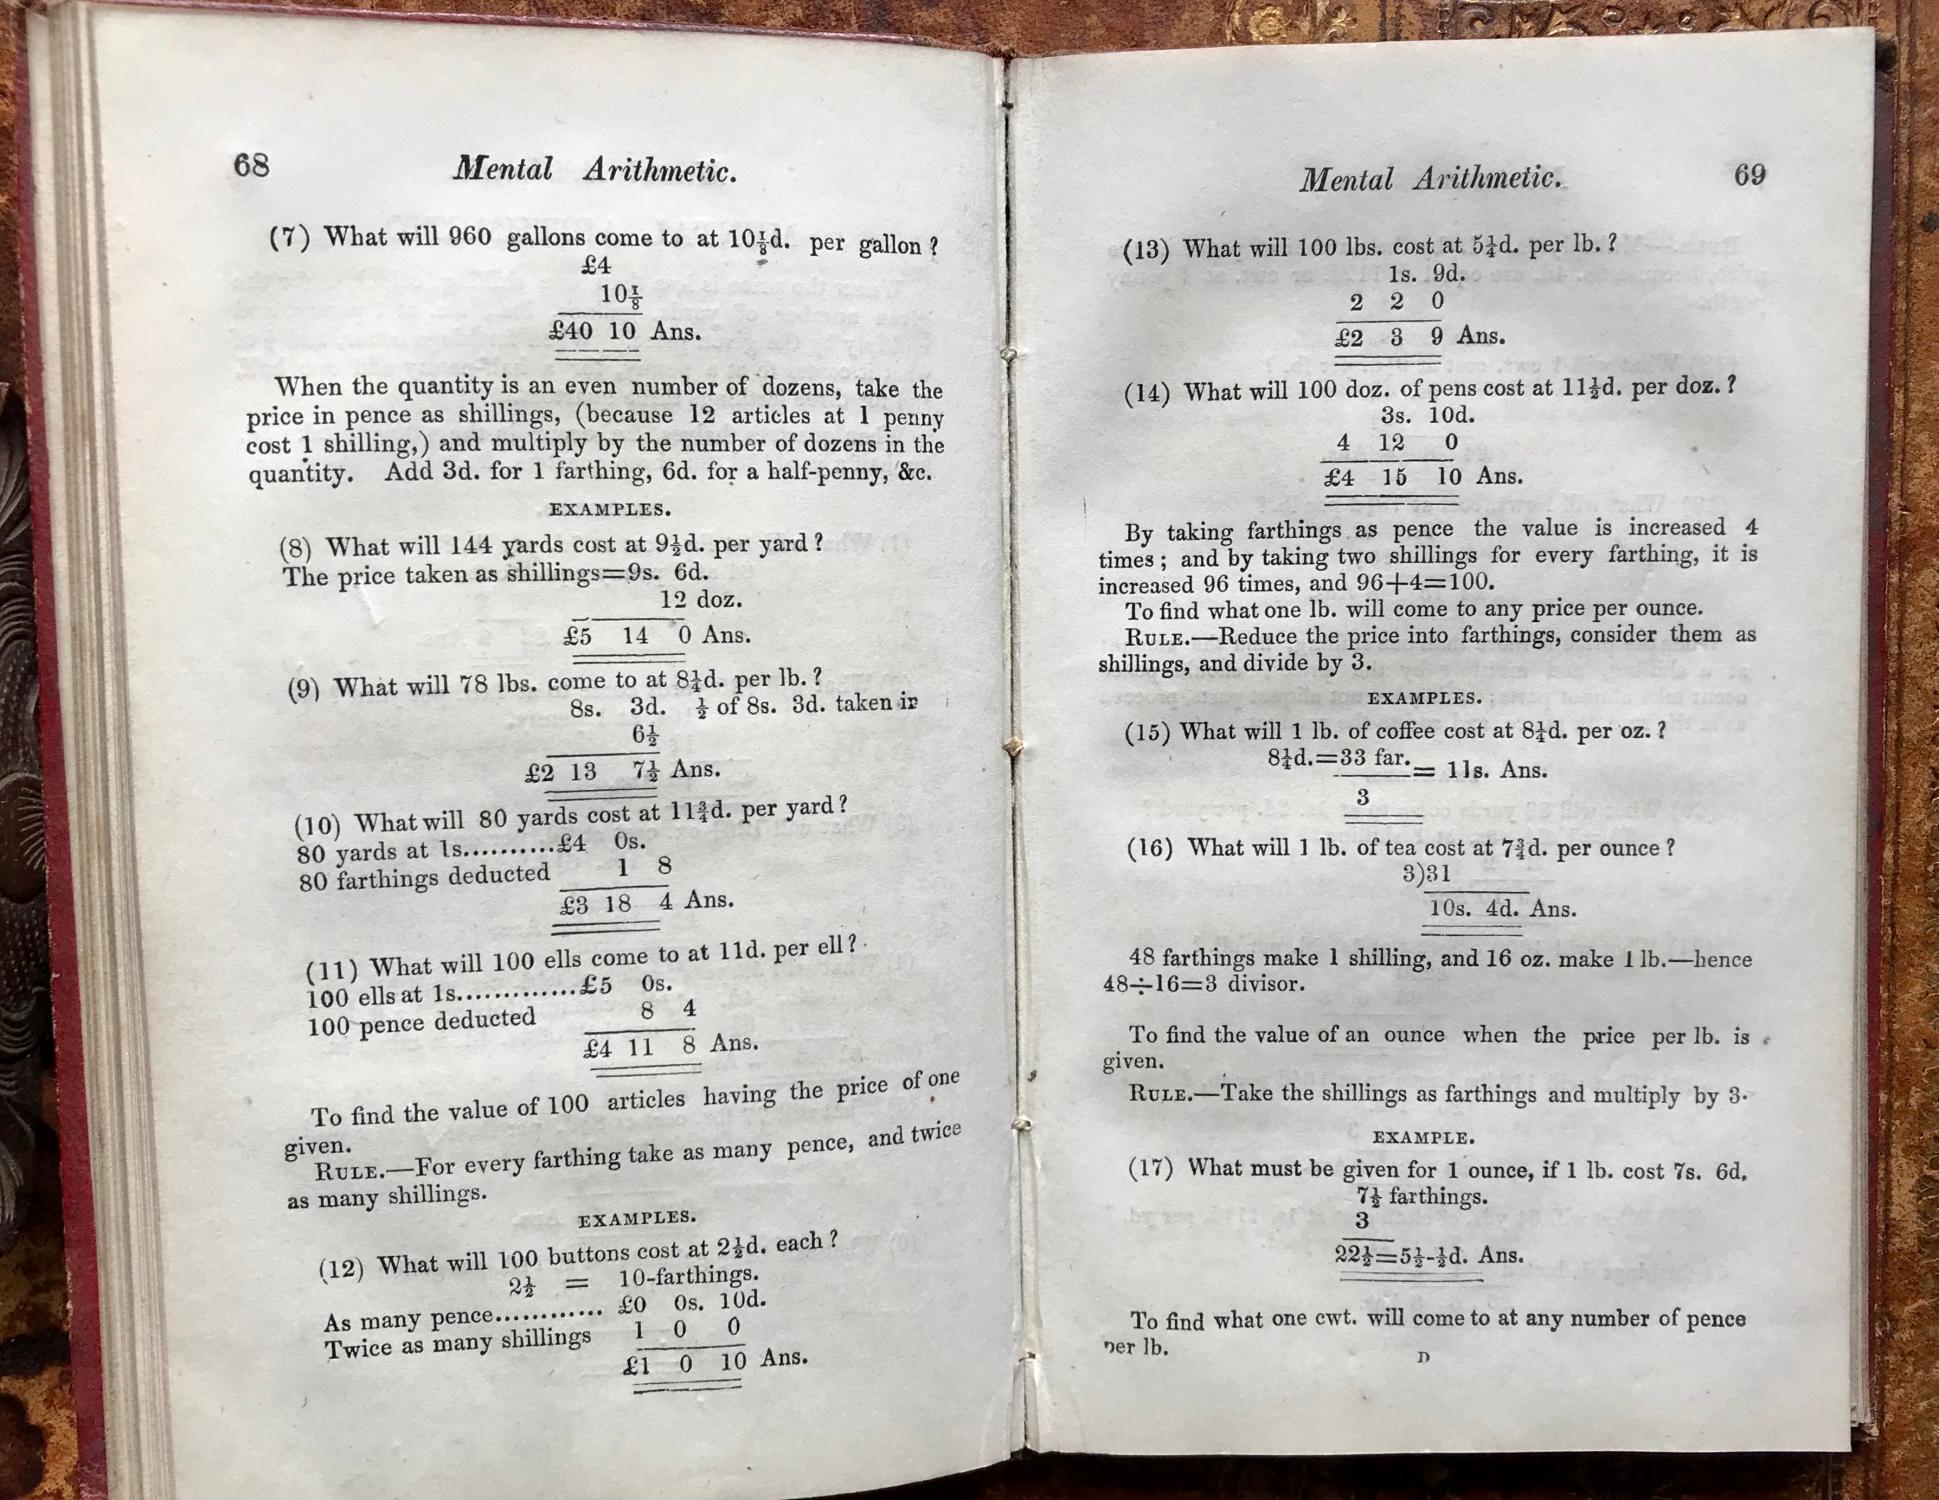 68 Mental Arithmetic.
(7) What will 960 gallons come to at 10⅛d. per gallon ?
£4
10⅛
£40 10 Ans.
When the quantity is an even number of dozens, take the
price in pence as shillings, (because 12 articles at 1 penny
cost 1 shilling,) and multiply by the number of dozens in the
quantity. Add 3d. for 1 farthing, 6d. for a half-penny, &c.
EXAMPLES.
(8) What will 144 yards cost at 9½d. per yard ?
The price taken as shillings=9s. 6d.
12 doz.
£5 14 0 Ans.
(9) What will 78 lbs. come to at 8¼d. per lb. ?
8s. 3d. ½ of 8s. 3d. taken in
6½
£2 13 7½ Ans.
(10) What will 80 yards cost at 11¾d. per yard ?
80 yards at 1s..........£4 0s.
80 farthings deducted 1 8
£3 18 4 Ans.
(11) What will 100 ells come to at 11d. per ell ?
100 ells at 1s.............£5 0s.
100 pence deducted 8 4
£4 11 8 Ans.
To find the value of 100 articles having the price of one
given.
RULE.—For every farthing take as many pence, and twice
as many shillings.
EXAMPLES.
(12) What will 100 buttons cost at 2½d. each ?
2½ = 10-farthings.
As many pence............ £0 0s. 10d.
Twice as many shillings 1 0 0
£1 0 10 Ans.
Mental Arithmetic. 69
(13) What will 100 lbs. cost at 5¼d. per lb. ?
1s. 9d.
2 2 0
£2 3 9 Ans.
(14) What will 100 doz. of pens cost at 11½d. per doz. ?
3s. 10d.
4 12 0
£4 15 10 Ans.
By taking farthings as pence the value is increased 4
times ; and by taking two shillings for every farthing, it is
increased 96 times, and 96+4=100.
To find what one lb. will come to any price per ounce.
RULE.—Reduce the price into farthings, consider them as
shillings, and divide by 3.
EXAMPLES.
(15) What will 1 lb. of coffee cost at 8¼d. per oz. ?
8¼d.=33 far. = 11s. Ans.
3
(16) What will 1 lb. of tea cost at 7¾d. per ounce ?
3)31
10s. 4d. Ans.
48 farthings make 1 shilling, and 16 oz. make 1 lb.—hence
48÷16=3 divisor.
To find the value of an ounce when the price per lb. is
given.
RULE.—Take the shillings as farthings and multiply by 3.
EXAMPLE.
(17) What must be given for 1 ounce, if 1 lb. cost 7s. 6d.
7½ farthings.
3
22½=5½-½d. Ans.
To find what one cwt. will come to at any number of pence
per lb.
D